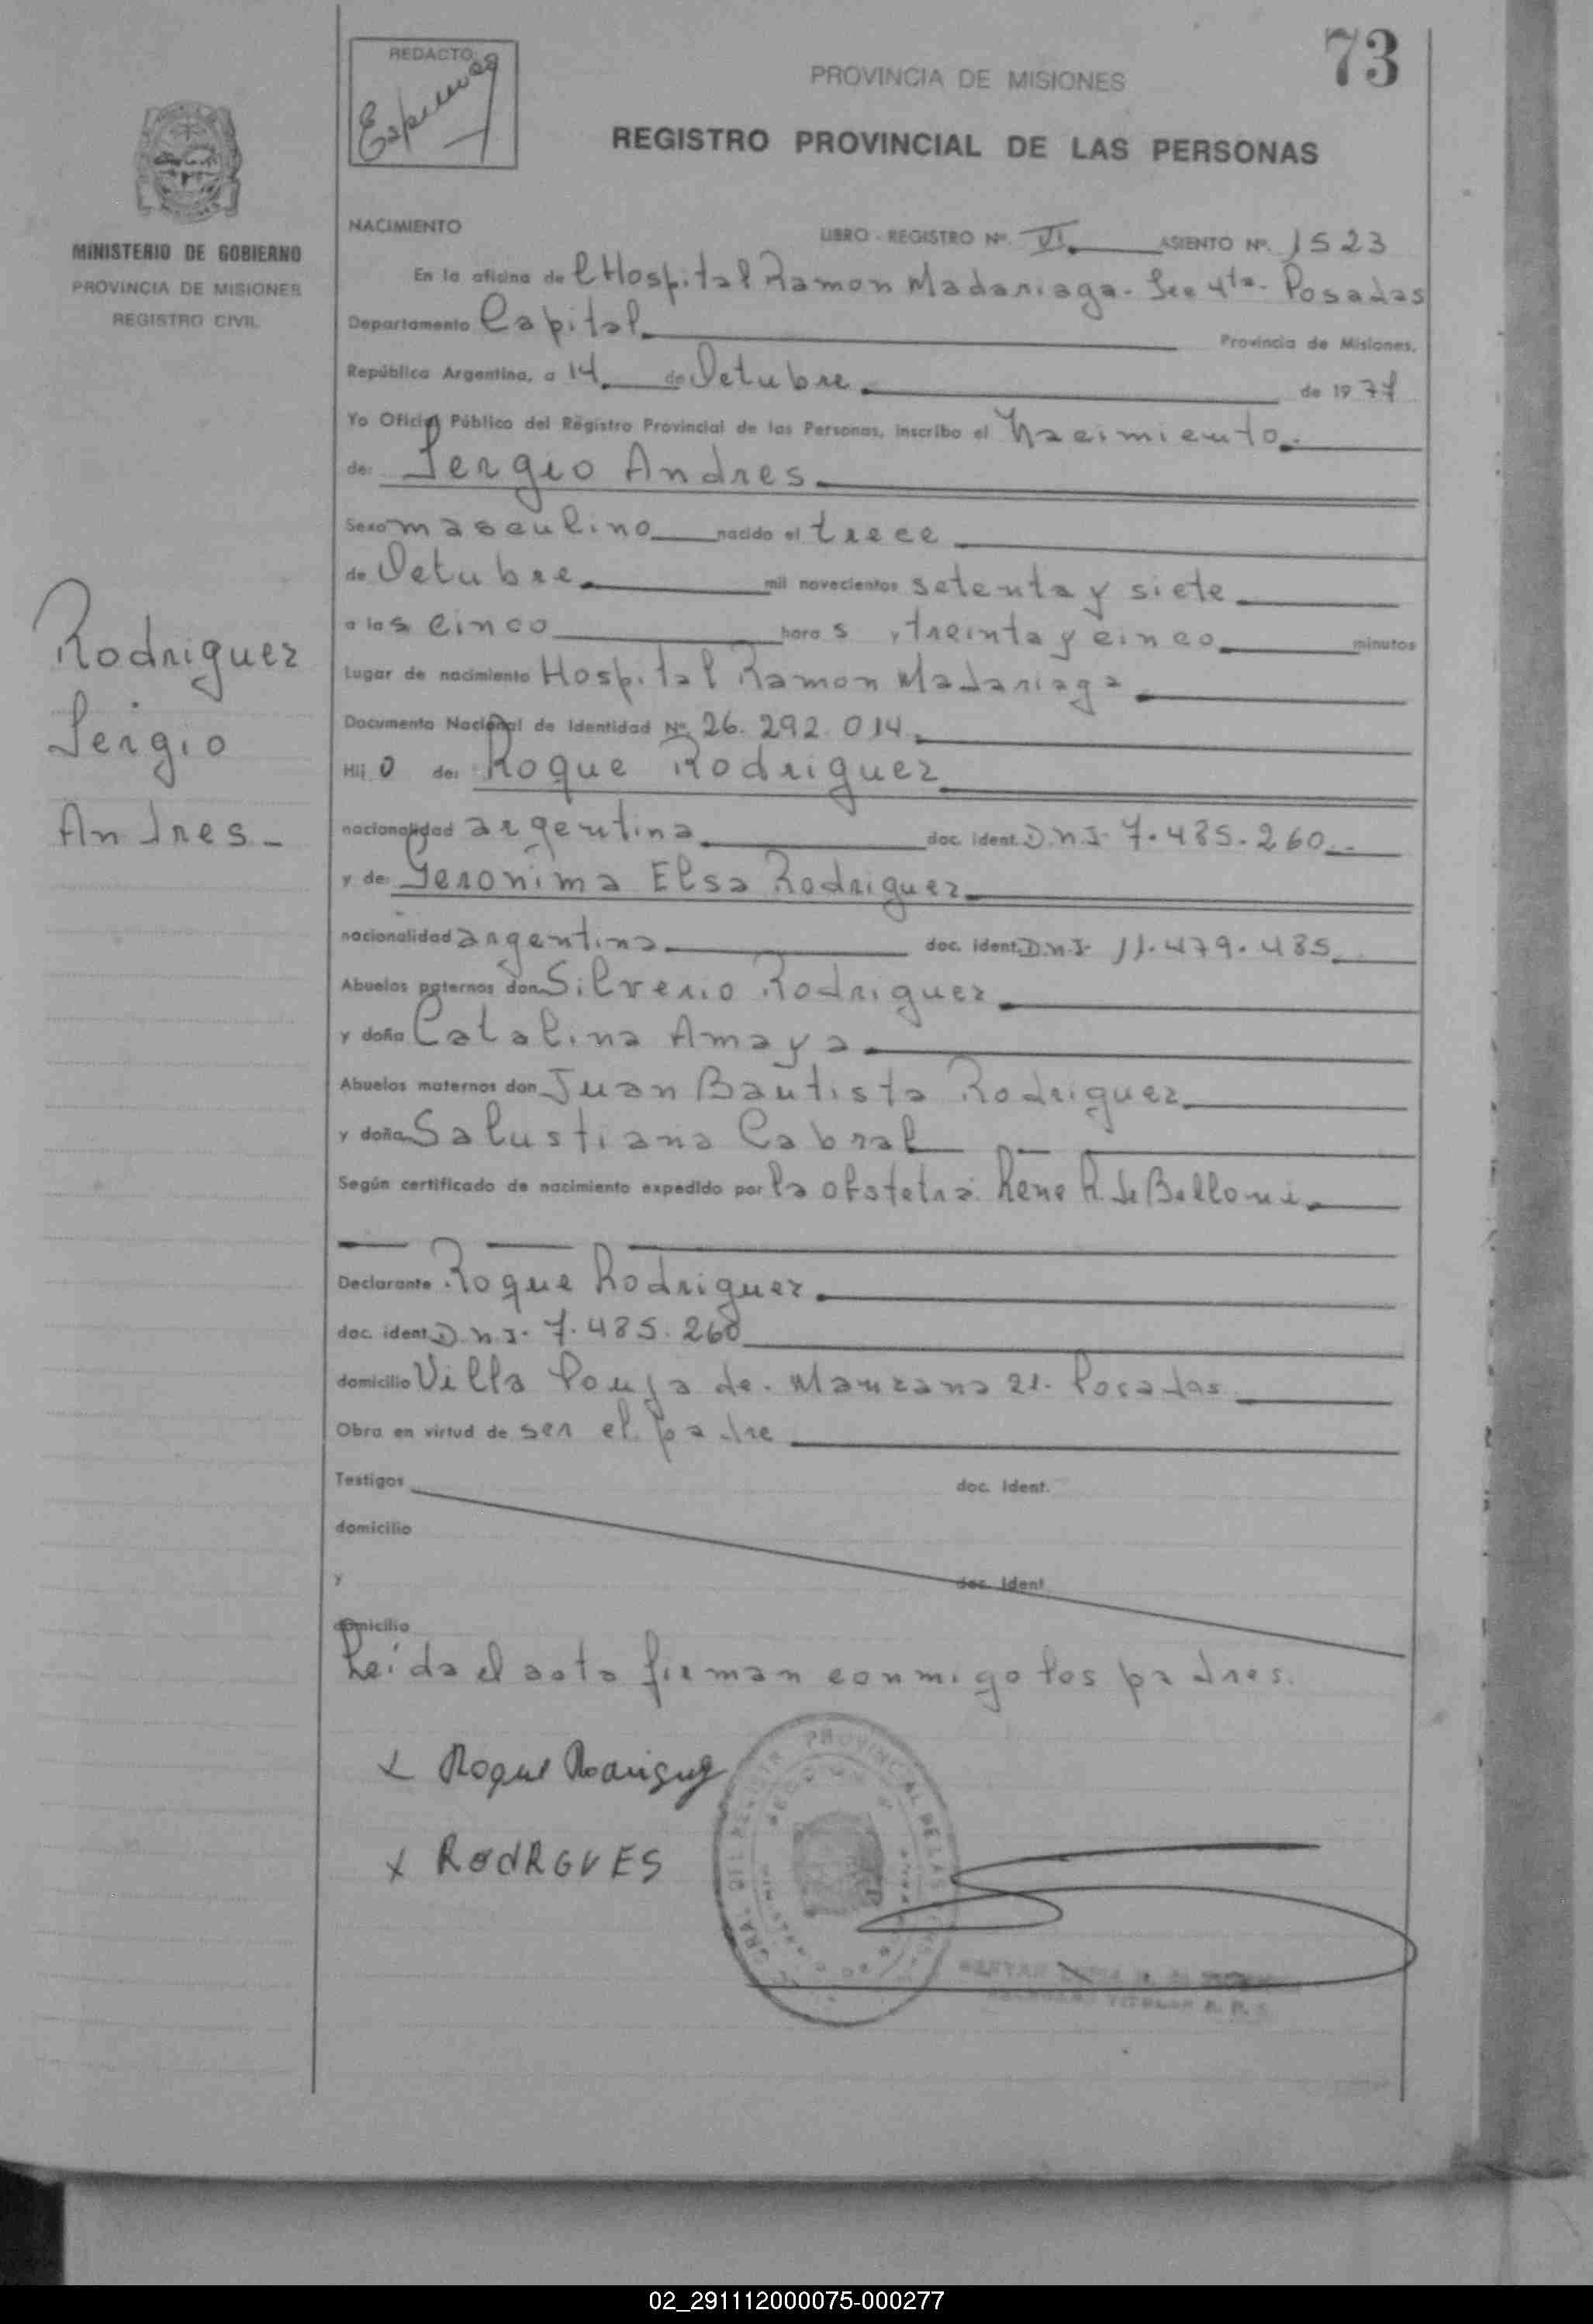 73
REDACTO:
PROVINCIA DE MISIONES
REGISTRO PROVINCIAL DE LAS PERSONAS
MINISTERIO DE GOBIERNO
PROVINCIA DE MISIONES
REGISTRO CIVIL
NACIMIENTO LIBRO - REGISTRO Nº. VI. ASIENTO Nº. 1523
En la oficina de l Hospital Ramon Madariaga - Sec 4ta - Posadas
Departamento Capital Provincia de Misiones,
República Argentina, a 14 de Octubre de 1977
Yo Oficial Público del Registro Provincial de las Personas, inscribo el Nacimiento
de: Sergio Andres
Sexo masculino nacido el trece
de Octubre mil novecientos setenta y siete
a las cinco hora s y treinta y cinco minutos
Lugar de nacimiento Hospital Ramon Madariaga
Documento Nacional de Identidad Nº. 26.292.014
Hij o de: Roque Rodriguez
nacionalidad argentina doc. ident. D.N.I- 7.485.260
y de: Geronima Elsa Rodriguez
nacionalidad argentina doc. ident. D.N.I- 11.479.485
Abuelos paternos don Silverio Rodriguez
y doña Catalina Amaya
Abuelos maternos don Juan Bautista Rodriguez
y doña Salustiana Cabral
Según certificado de nacimiento expedido por la obstetra Rene R. de Belloni
Declarante Roque Rodriguez
doc. ident. D.N.I- 7.485.260
domicilio Villa de. Manzana 21- Posadas
Obra en virtud de ser el padre
Testigos doc. ident.
domicilio
y doc. ident.
domicilio
Leida el acta firman conmigo los padres.
Rodriguez
Sergio
Andres -
x Roque Rodriguez
x RodRGUES
PROVINCIAL DE LAS
02_291112000075-000277